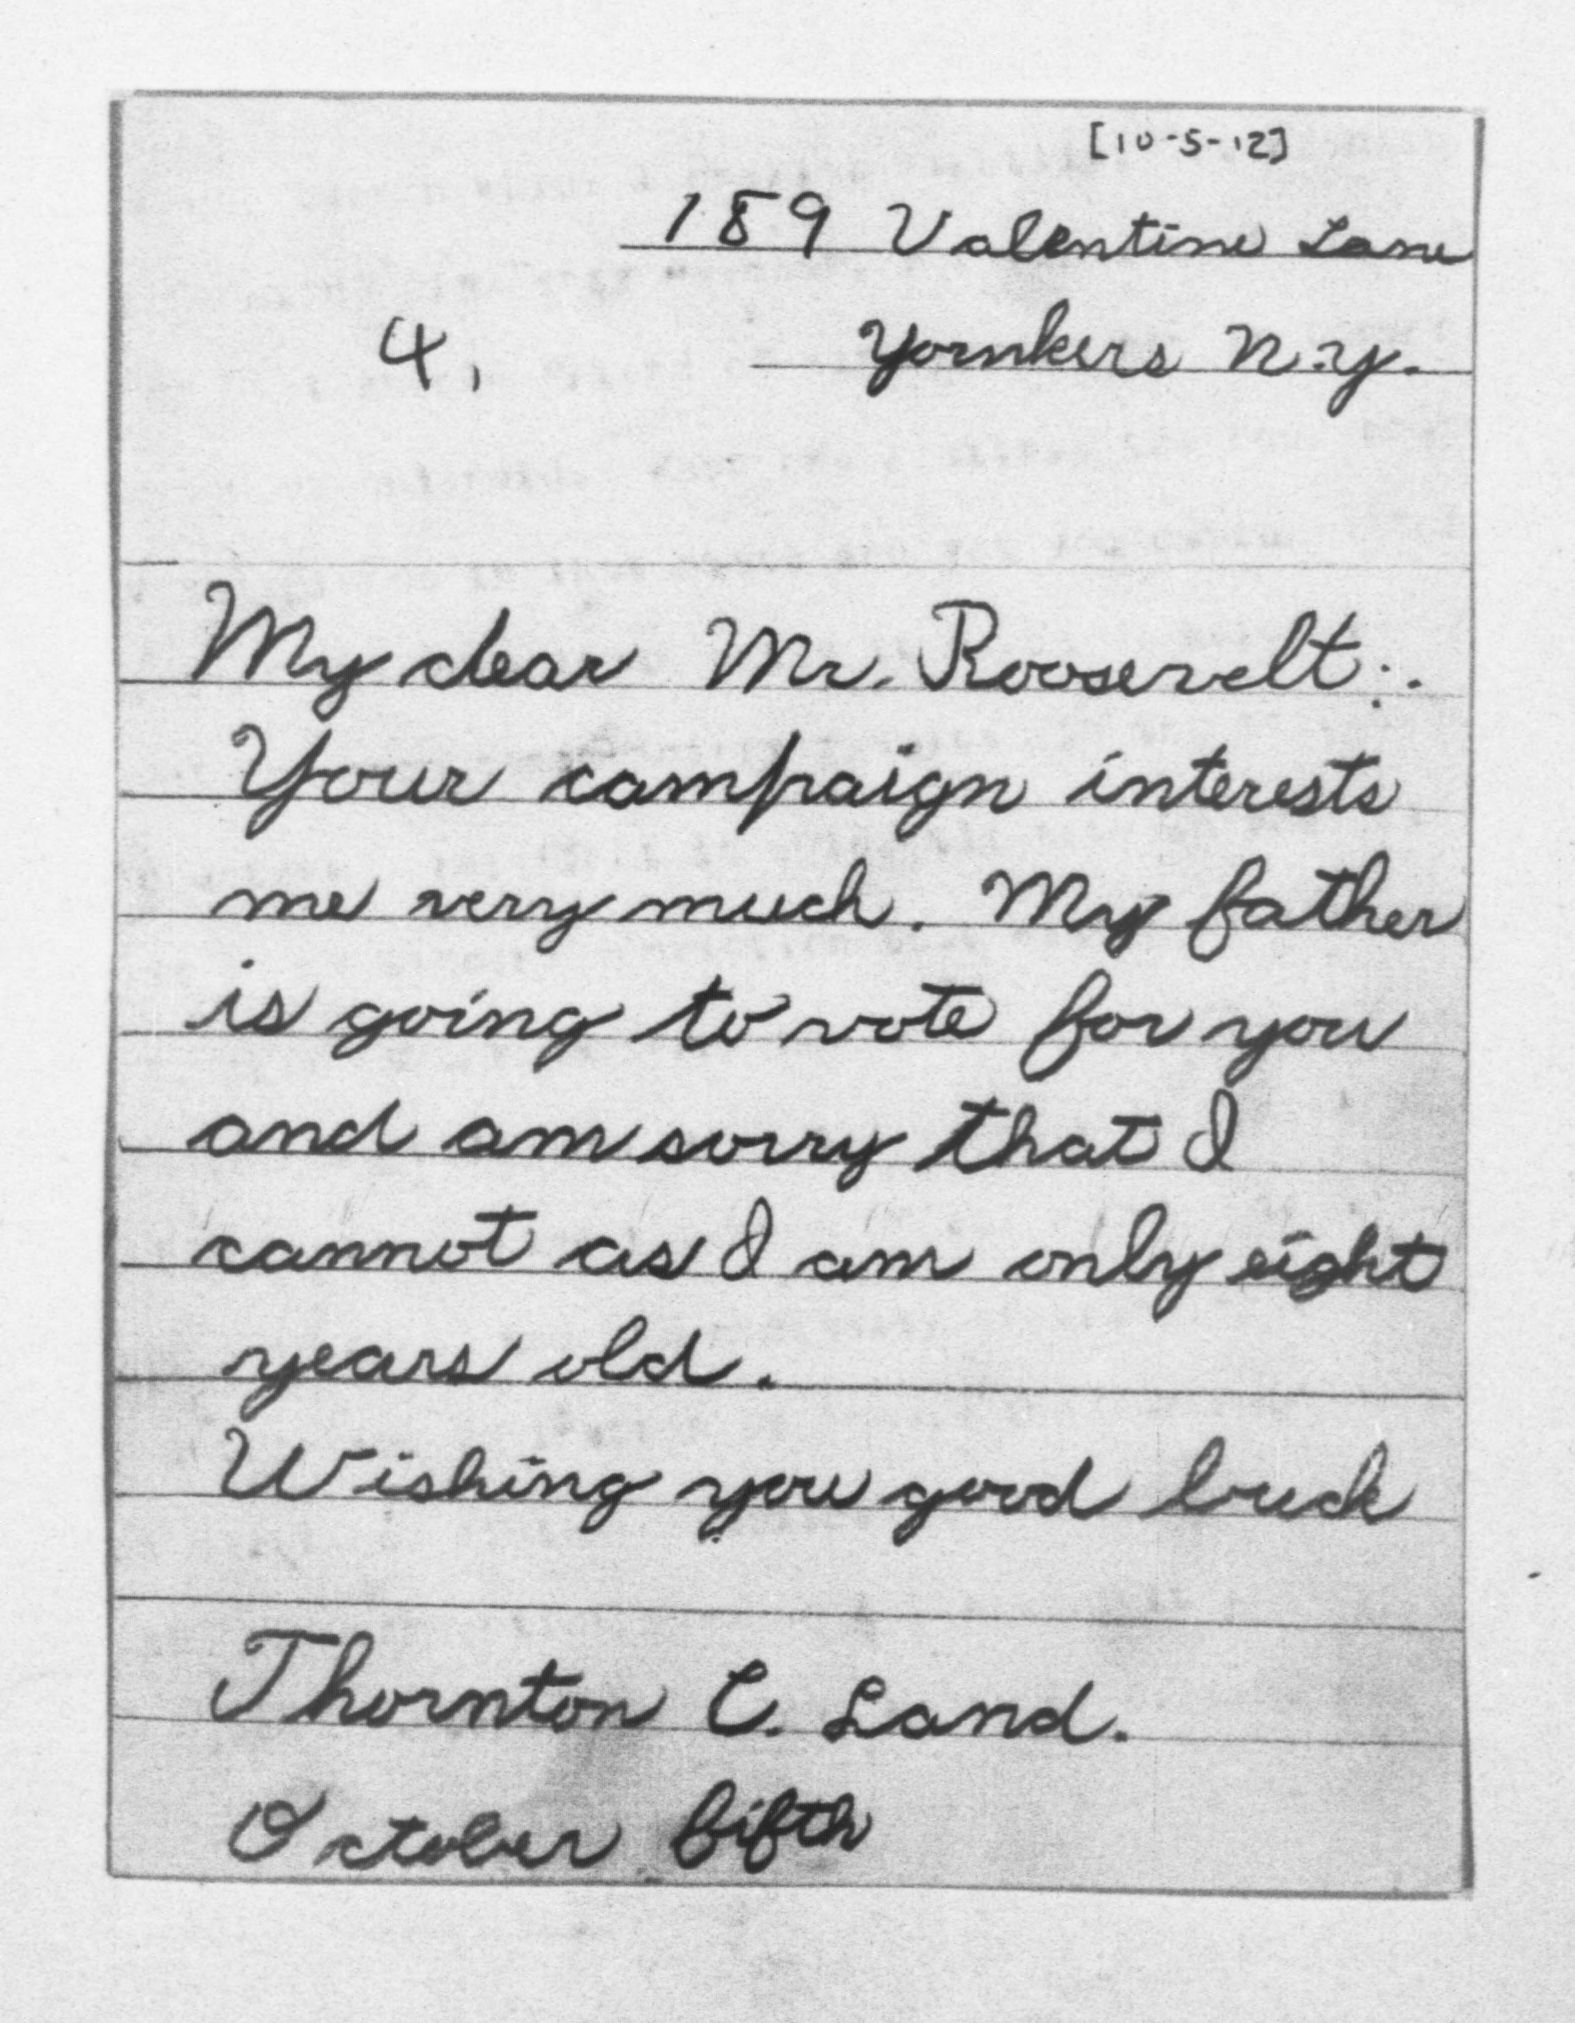 [10-5-12]
189 Valentine Lane
4, Yornkers N.Y.
My dear Mr. Roosevelt:.
Your campaign interests
me very much. My father
is going to vote for you
and am sorry that I
cannot as I am only eight
years old.
Wishing you good luck
Thornton C. Land.
October fifth